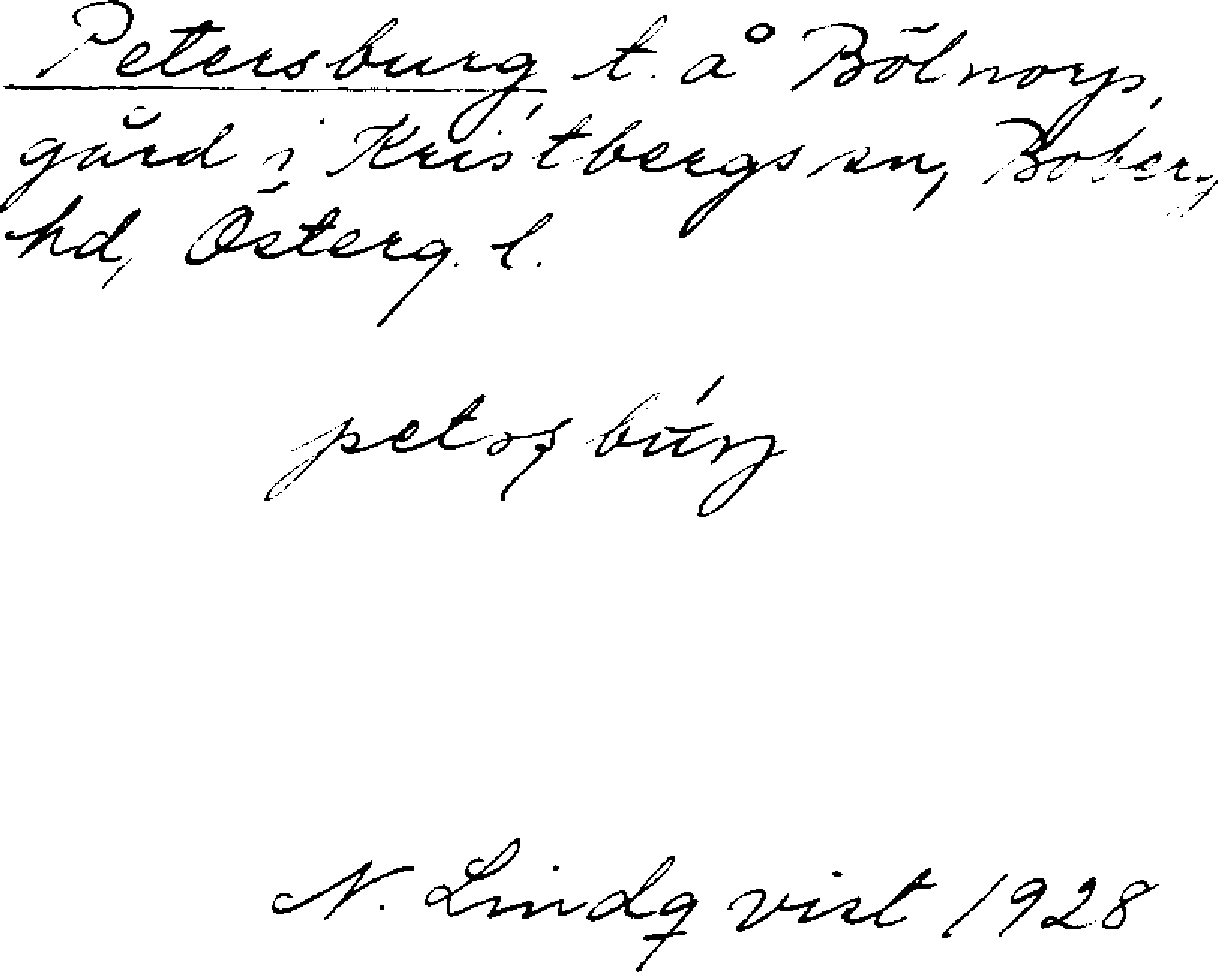 Petersburg, t. å Bölnorps
gård i Kristbergs sn, Boberg
hd, Österg. l.
petrs búrj
N. Lindqvist 1928